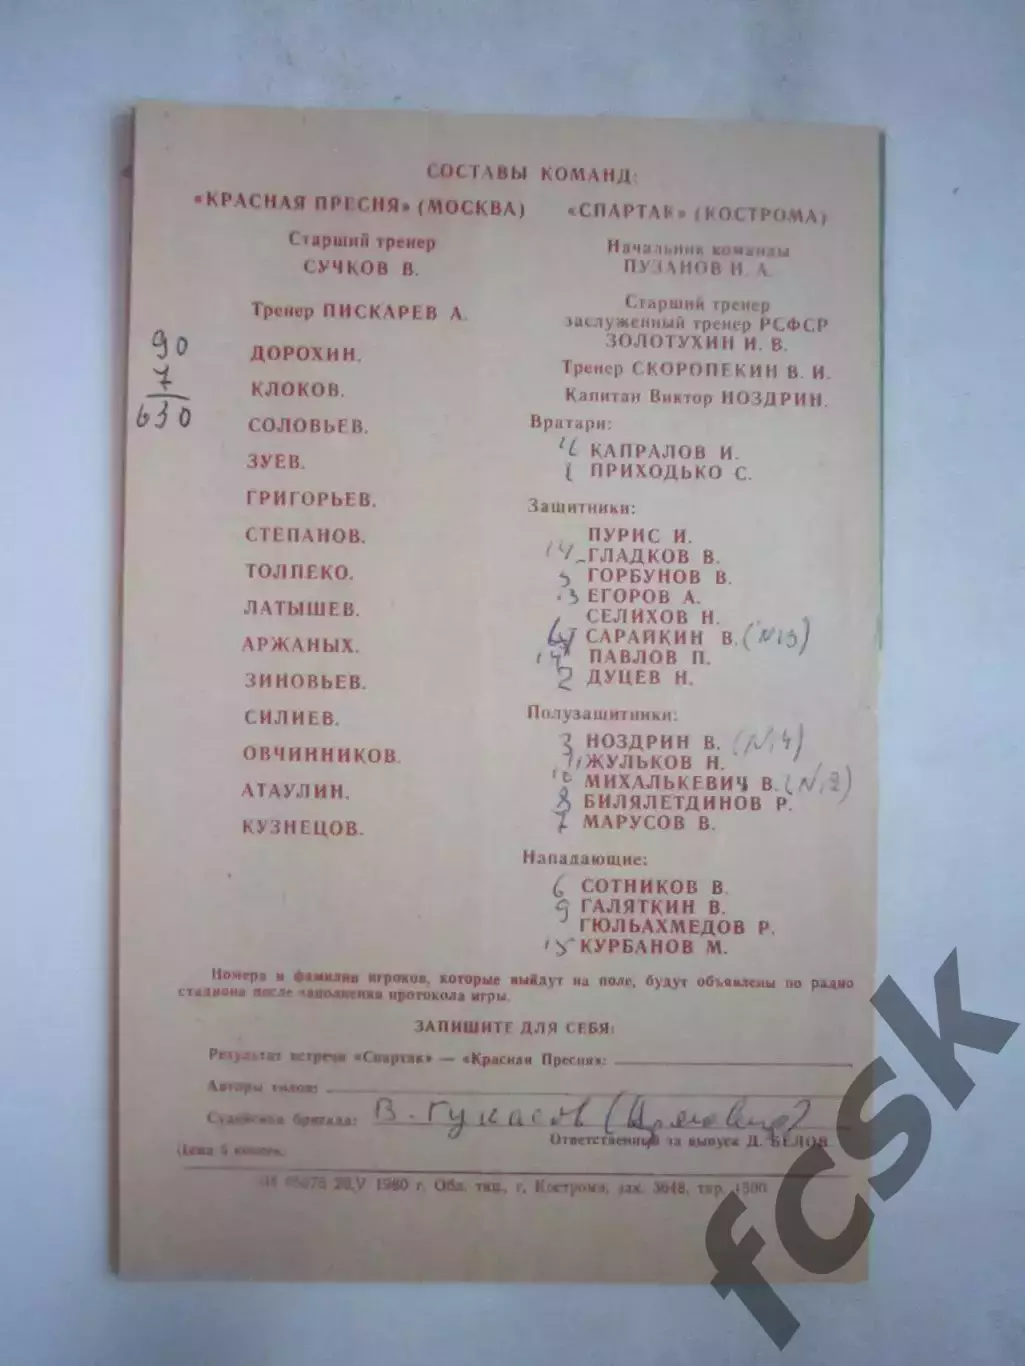 СОСТАВЫ КОМАНД:
«КРАСНАЯ ПРЕСНЯ» (МОСКВА)
Старший тренер
СУЧКОВ В.
Тренер ПИСКАРЕВ А.
ДОРОХИН.
КЛОКОВ.
СОЛОВЬЕВ.
ЗУЕВ.
ГРИГОРЬЕВ.
СТЕПАНОВ.
ТОЛПЕКО.
ЛАТЫШЕВ.
АРЖАНЫХ.
ЗИНОВЬЕВ.
СИЛИЕВ.
ОВЧИННИКОВ.
АТАУЛИН.
КУЗНЕЦОВ.
90
7
630
«СПАРТАК» (КОСТРОМА)
Начальник команды
ПУЗАНОВ Н. А.
Старший тренер
заслуженный тренер РСФСР
ЗОЛОТУХИН И. В.
Тренер СКОРОПЕКИН В. И.
Капитан Виктор НОЗДРИН.
Вратари:
КАПРАЛОВ И.
1 ПРИХОДЬКО С.
Защитники:
ПУРИС И.
14 ГЛАДКОВ В.
5 ГОРБУНОВ В.
3 ЕГОРОВ А.
СЕЛИХОВ Н.
САРАЙКИН В. (N13)
ПАВЛОВ П.
2 ДУЦЕВ Н.
Полузащитники:
3 НОЗДРИН В. (N14)
11 ЖУЛЬКОВ Н.
10 МИХАЛЬКЕВИЧ В. (N12)
8 БИЛЯЛЕТДИНОВ Р.
7 МАРУСОВ В.
Нападающие:
6 СОТНИКОВ В.
9 ГАЛЯТКИН В.
ГЮЛЬАХМЕДОВ Р.
15 КУРБАНОВ М.
Номера и фамилии игроков, которые выйдут на поле, будут объявлены по радио
стадиона после заполнения протокола игры.
ЗАПИШИТЕ ДЛЯ СЕБЯ:
Результат встречи «Спартак» — «Красная Пресня»:
Авторы голов:
Судейская бригада: В. Гукасов
Ответственный за выпуск Д. БЕЛОВ.
Цена 5 копеек.
20.V 1980 г. Обл. тип., г. Кострома, зак. 3648, тир. 1500
fcsk